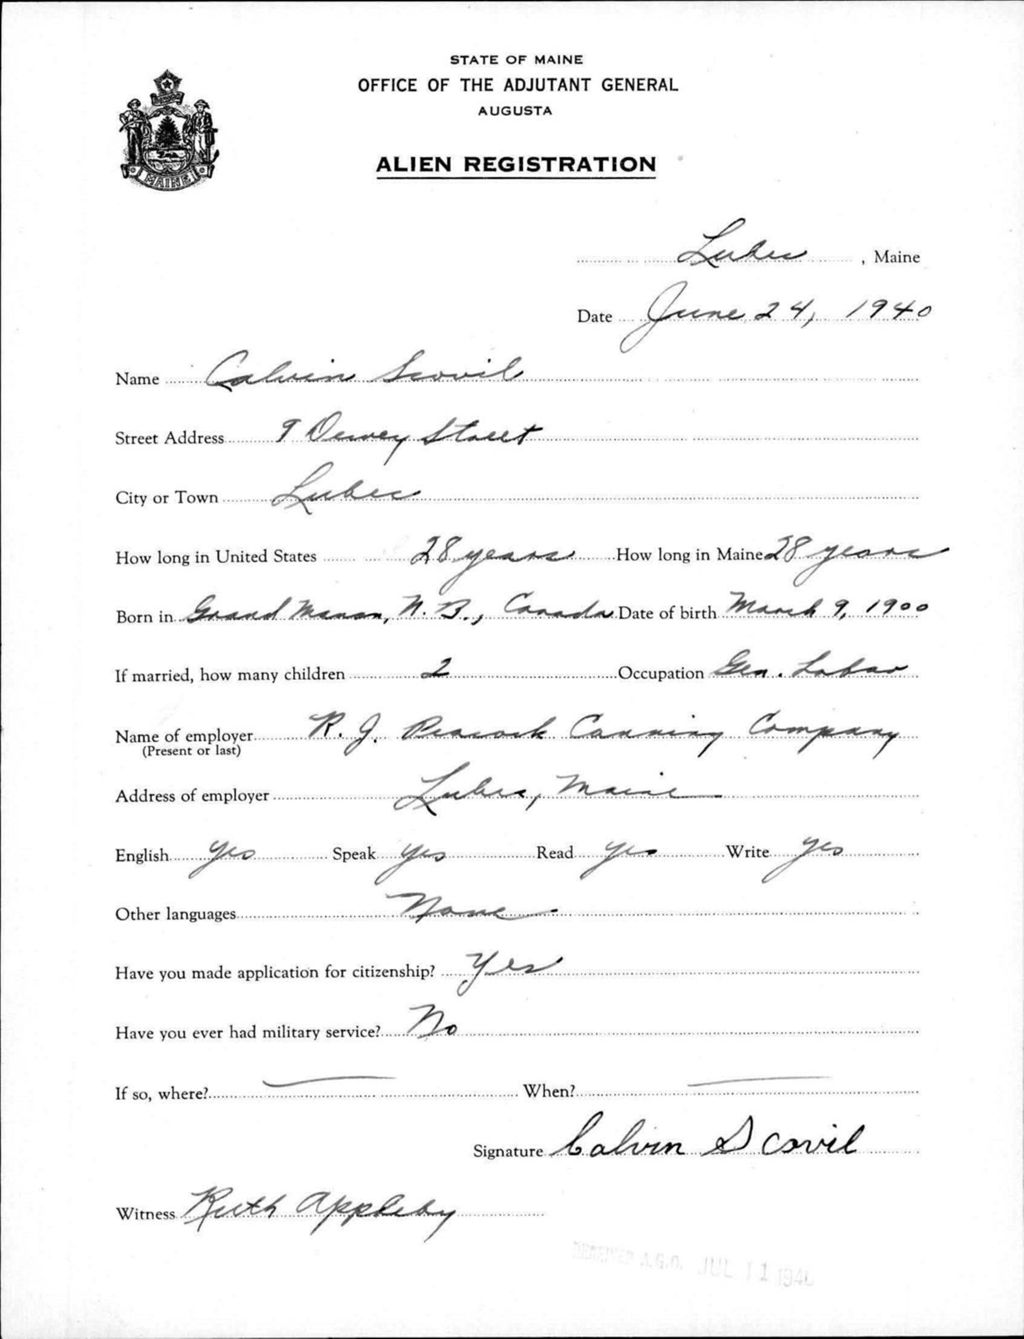 STATE OF MAINE
OFFICE OF THE ADJUTANT GENERAL
AUGUSTA
ALIEN REGISTRATION
MAINE
Lubec, Maine
Date June 24, 1940
Name Calvin Scovil
Street Address 9 Dewey Street
City or Town Lubec
How long in United States 28 years How long in Maine 28 years
Born in Grand Manan, N. B., Canada Date of birth March 9, 1900
If married, how many children 2 Occupation Gen. Labor
Name of employer R. J. Peacock Canning Company
(Present or last)
Address of employer Lubec, Maine
English yes Speak yes Read yes Write yes
Other languages None
Have you made application for citizenship? Yes
Have you ever had military service? No
If so, where? When?
Signature Calvin Scovil
Witness Ruth Appleby
RECEIVED A.G.O. JUL 11 1940